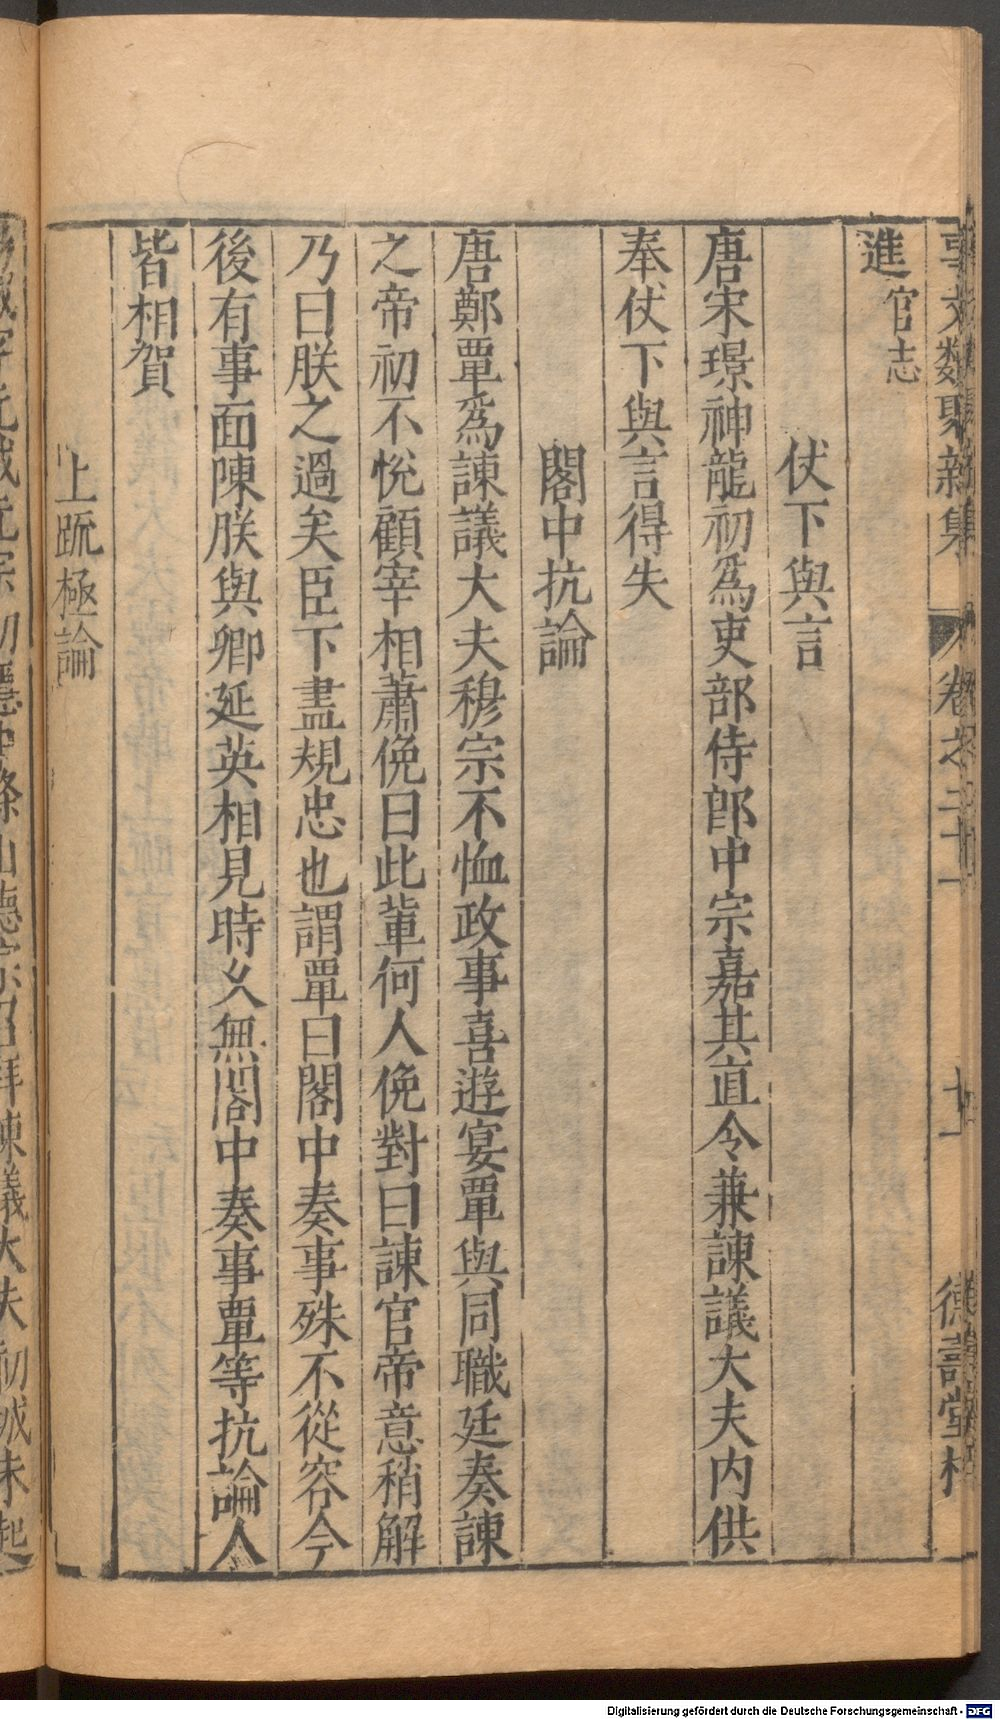 事文類聚新集 卷之二十一 十一 德壽堂梓
進官志
仗下與言
唐宋璟神龍初爲吏部侍郎中宗嘉其直令兼諫議大夫內供
奉仗下與言得失
閣中抗論
唐鄭覃爲諫議大夫穆宗不恤政事喜遊宴覃與同職廷奏諫
之帝初不悅顧宰相蕭俛曰此輩何人俛對曰諫官帝意稍解
乃曰朕之過矣臣下盡規忠也謂覃曰閣中奏事殊不從容今
後有事面陳朕與卿延英相見時久無閤中奏事覃等抗論人
皆相賀
上䟽極論
城字亢宗初隱中條山德宗召拜諫議大夫初城未起
Digitalisierung gefördert durch die Deutsche Forschungsgemeinschaft - DFG